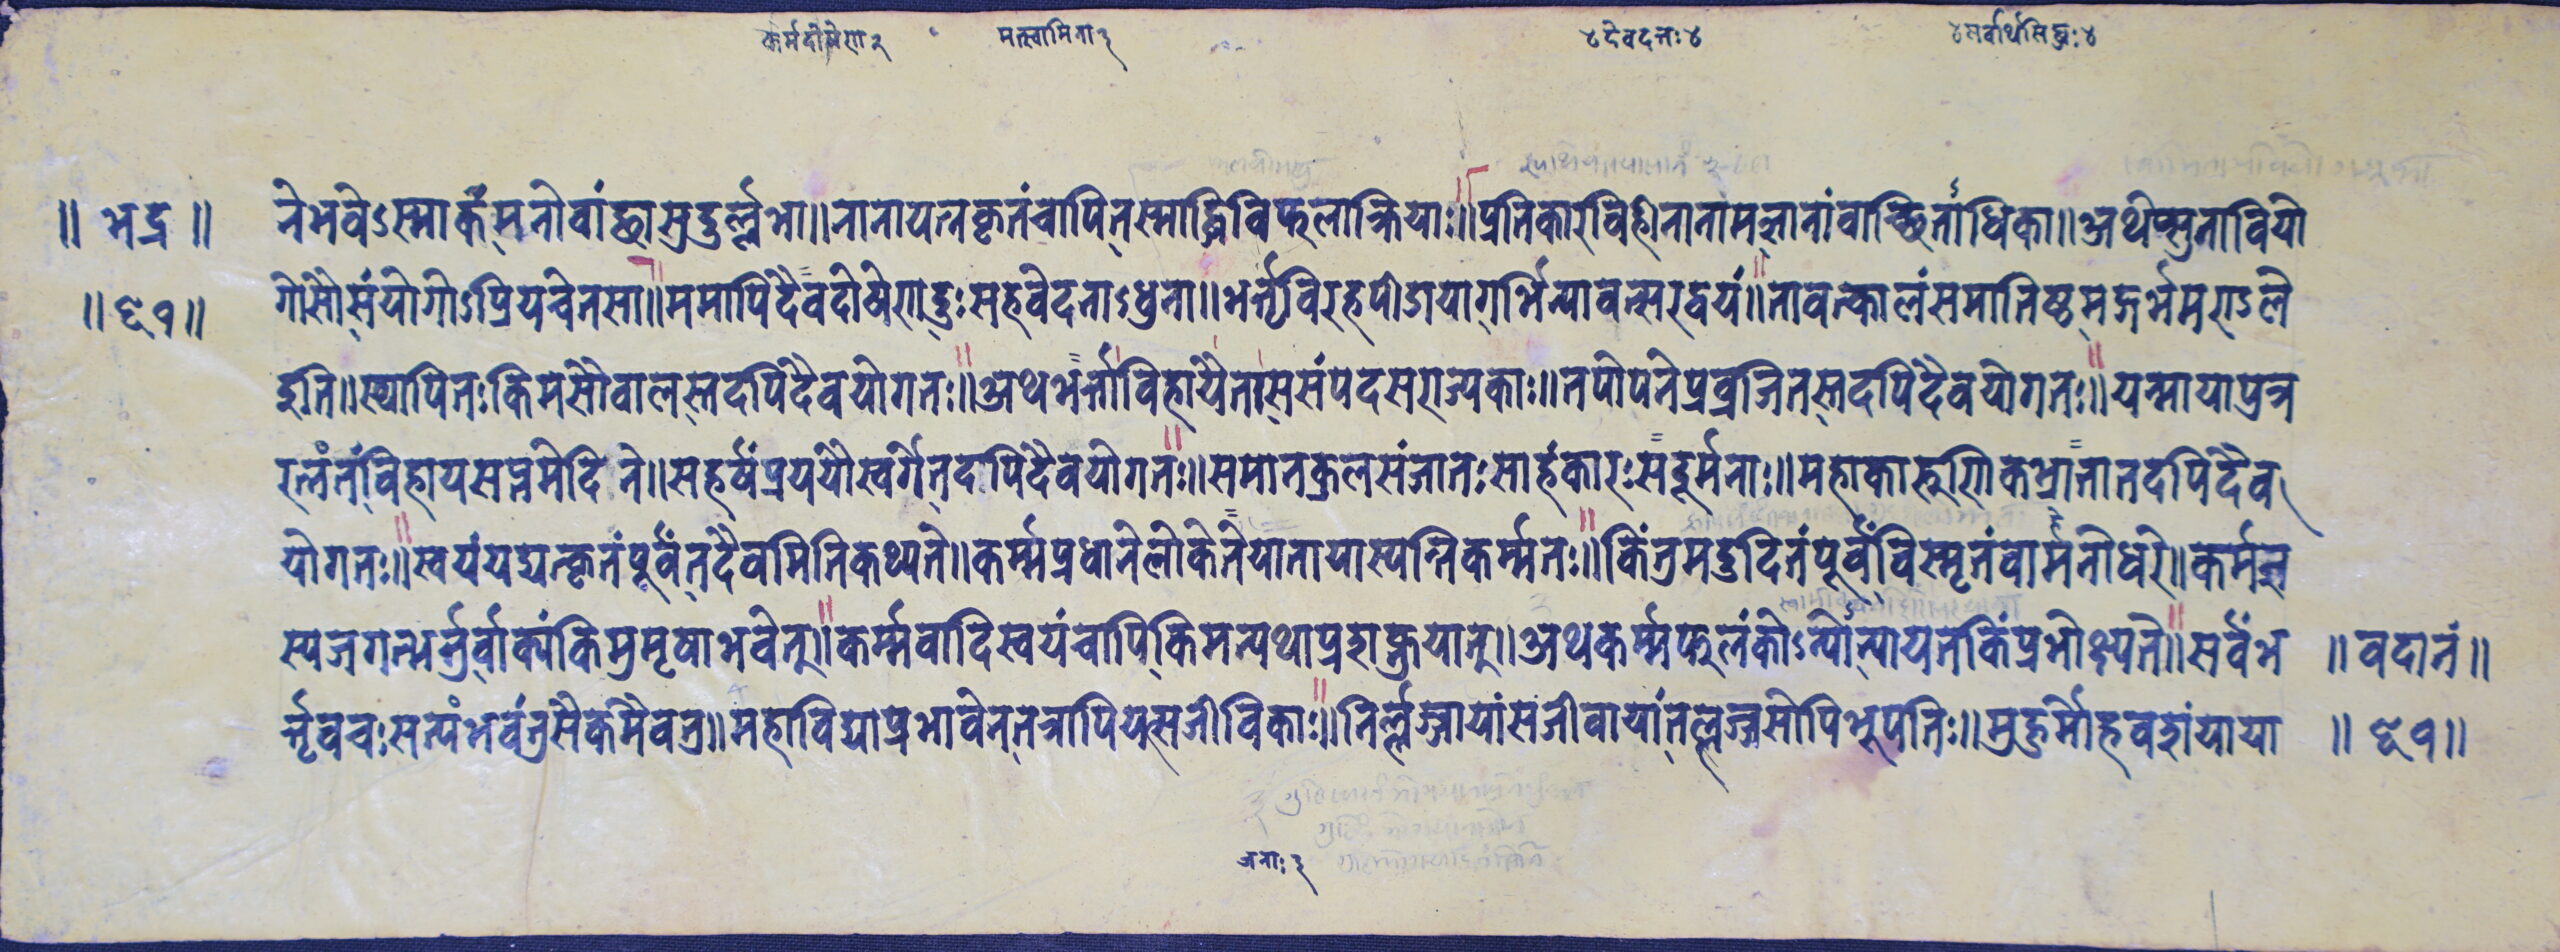 कर्मदोषेण २ मत्स्वामिना ३ ४देवदत्तः४ ४सर्वार्थसिद्धः४
॥ भद्र ॥ नेभवेऽस्माकंमनोवांछासुदुर्ल्लभा॥नानायत्नकृतंचापितस्माद्धिविफलाक्रियाः॥प्रतिकारविहीनानामज्ञानांवाञ्छितांधिका॥अथेप्सुनावियो
॥ ६१॥ गोसौसंयोगोऽप्रियचेतसा॥ममापिदैवदोषेणदुःसहवेदनाऽधुना॥भर्त्तृविरहपीडायागर्भिन्यावत्सरद्वयं॥तावत्कालंसमातिष्ठमद्गर्भमराऽले
द्रुति॥स्थापितःकिमसौवालस्तदपिदैवयोगतः॥अथभर्त्ताविहायैताससंपदसराज्यकाः॥तपोपनेप्रव्रजितस्तदपिदैवयोगतः॥यन्मायापुत्र
रत्नंतंविहायसप्तमेदिने॥सहर्षंप्रययौस्वर्गेतदपिदैवयोगतः॥समानकुलसंजातःसाहंकारःसदूर्मनाः॥महाकारुणिकभ्रातातदपिदैव
योगतः॥स्वयंयद्यत्कृतंपूर्वंतदैवमितिकथ्यते॥कर्म्मप्रधानेलोकेतैयातायास्यन्तिकर्म्मतः॥किंनुमद्रुदितंपूर्वंविस्मृतंवामनोधरे॥कर्मज्ञ
स्यजगत्भर्त्तुर्वाक्यंकिमुमृषाभवेत्॥कर्म्मवादिस्वयंचापिकिमन्यथाप्रशक्नुयात्॥अथकर्म्मफलंकोऽन्योन्यायतकिंप्रभोक्ष्यते॥सर्वंभ ॥ वदानं॥
र्त्तृवचःसत्यंभवंतुसैकमेवतु॥महाविद्याप्रभावेनतत्रापियुत्सजीविकाः॥निर्ल्लज्जायांसजीवायांतल्लज्जसोपिभूपतिः॥मुहुर्मोहवशंयाया ॥ ६१॥
जनाः ३